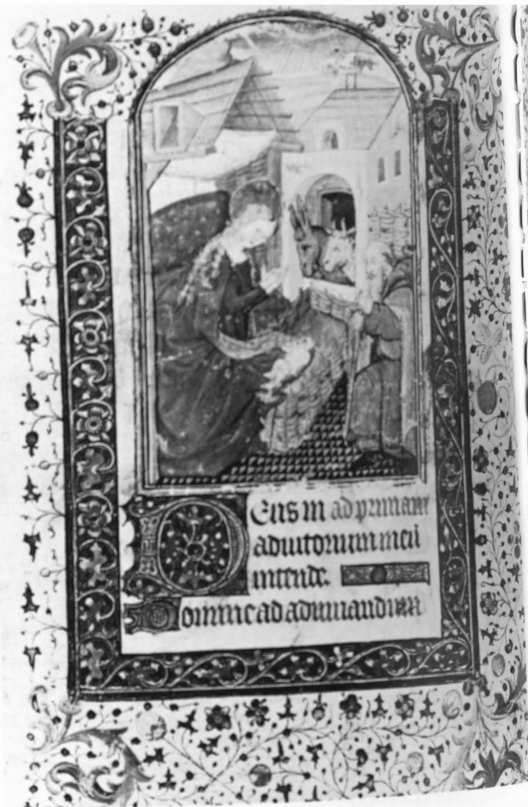 Deus in ad primam
adiutorium meu
intende.
Domine ad adiuuandum